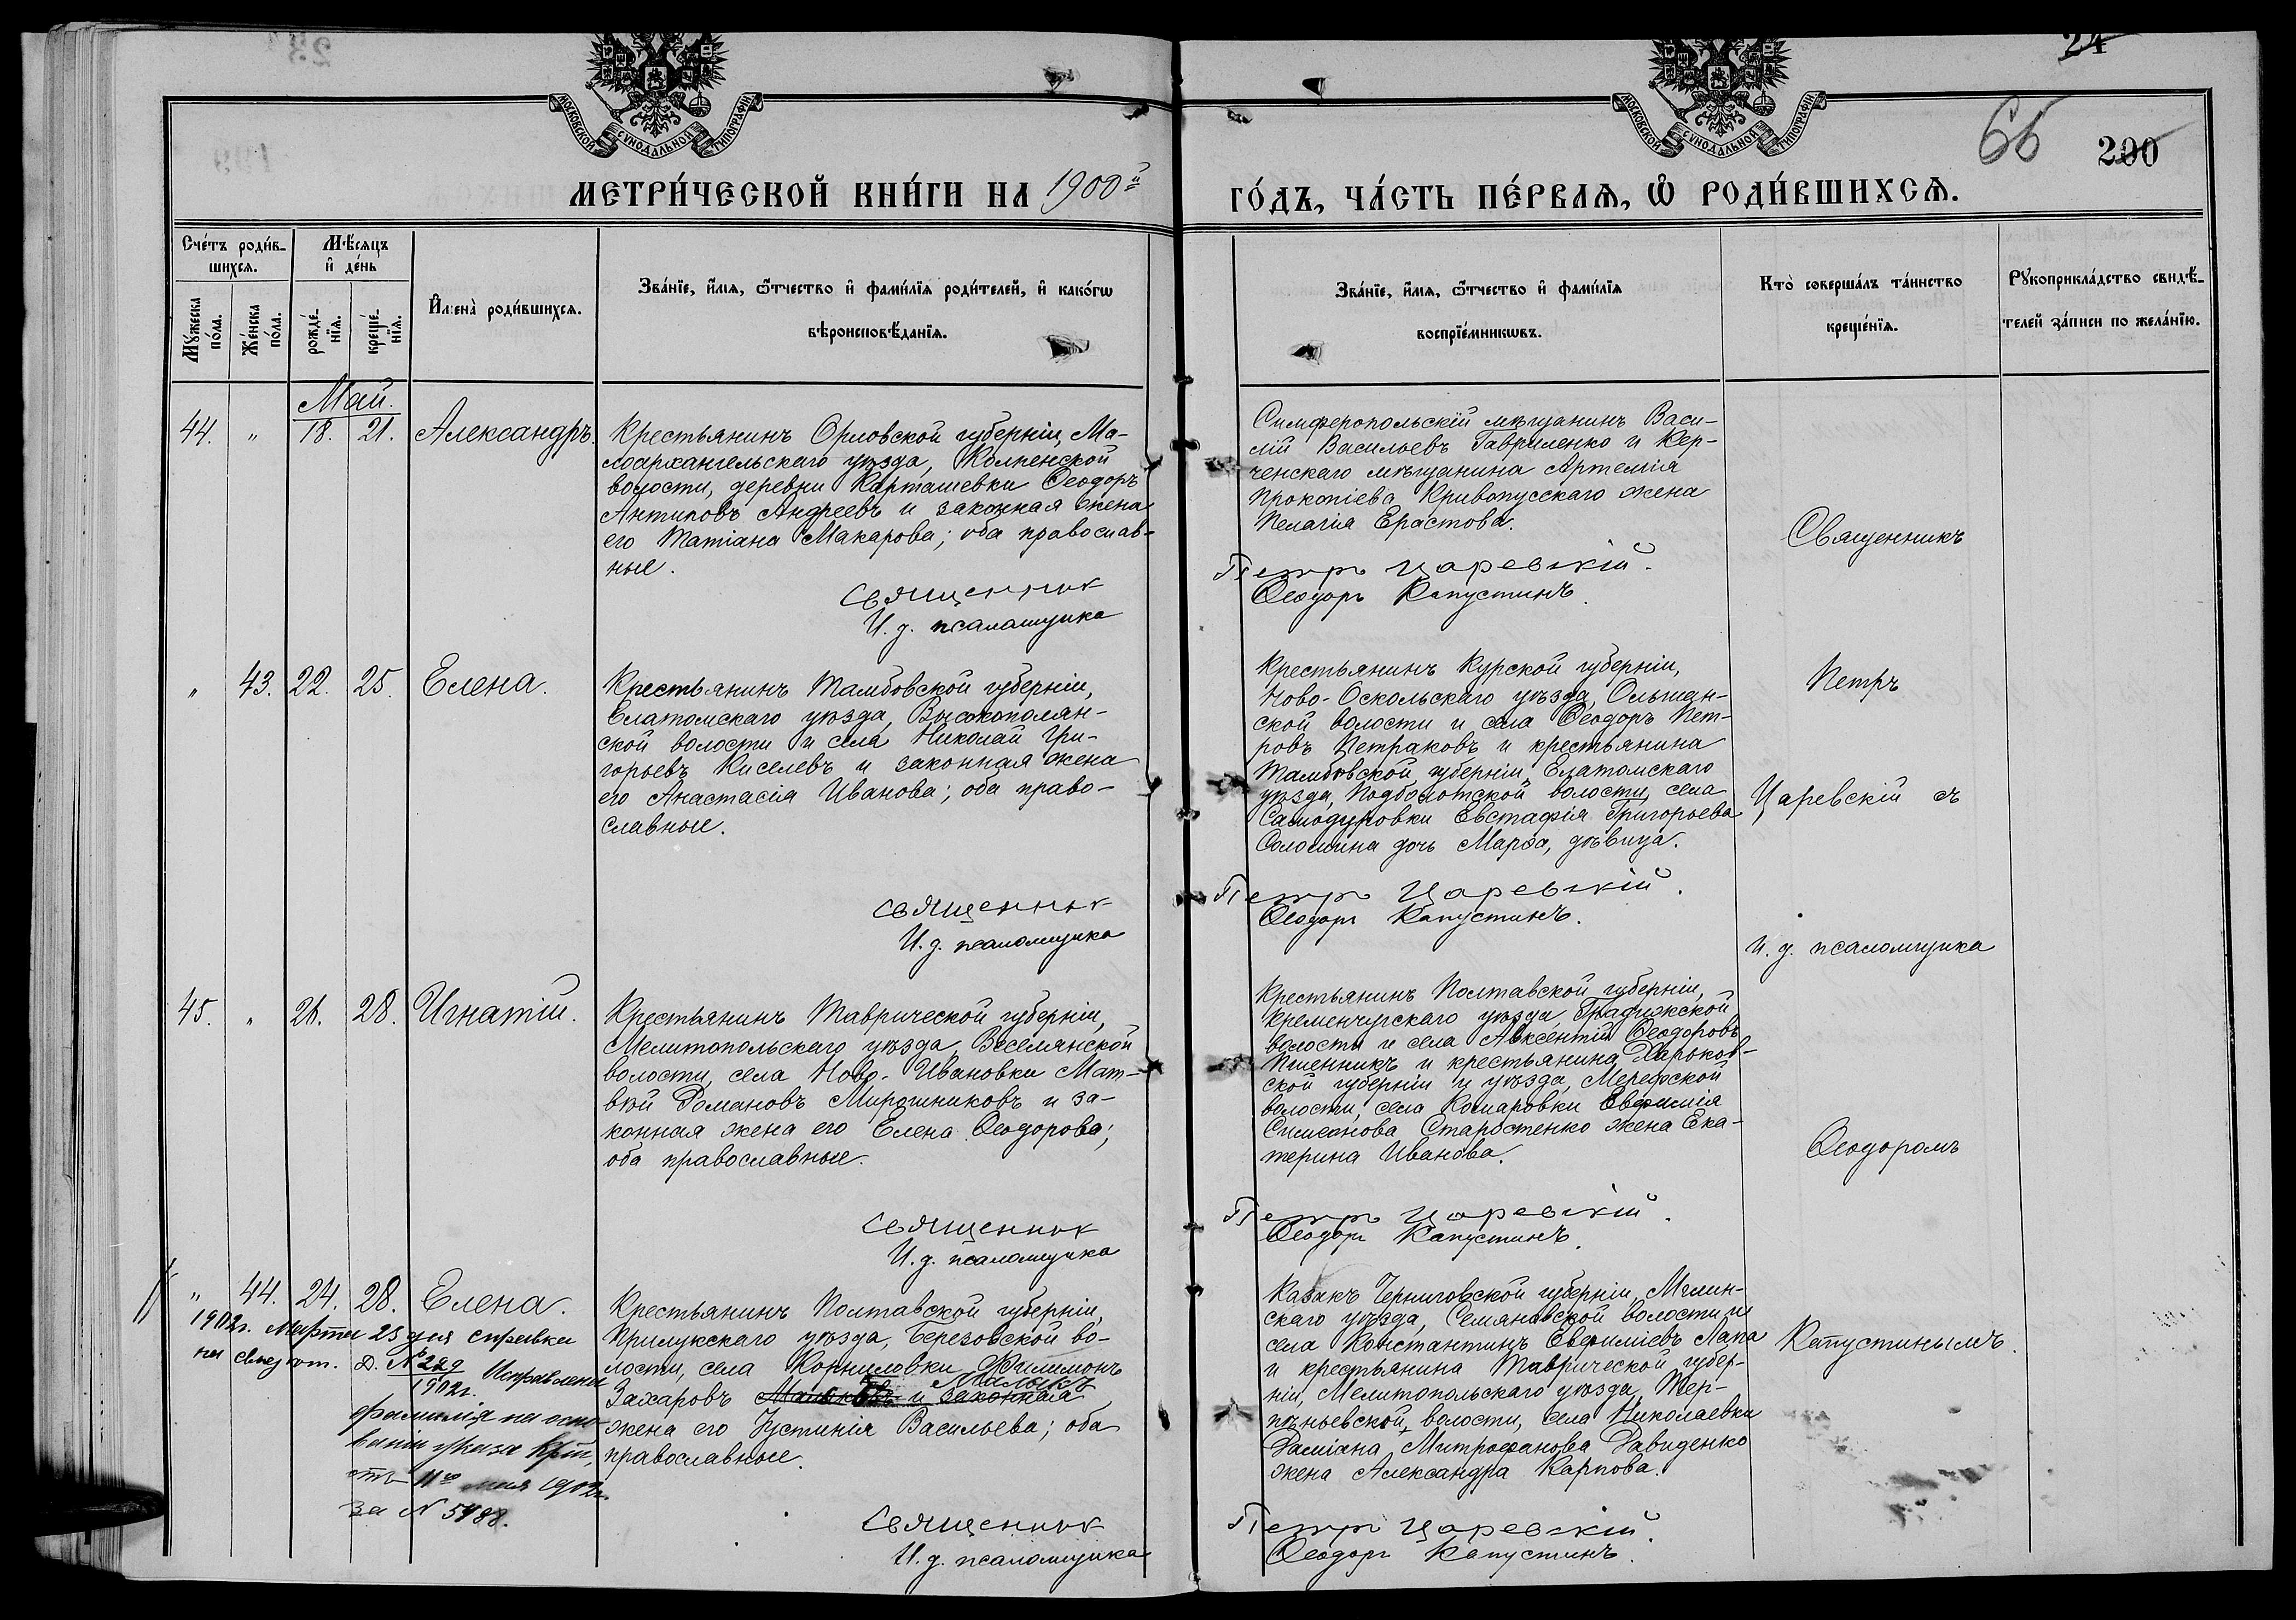 24
66 200
МОСКОВСКОЙ СѴНОДАЛЬНОЙ ТИПОГРАФІИ.
МОСКОВСКОЙ СѴНОДАЛЬНОЙ ТИПОГРАФІИ.
МЕТРИ́ЧЕСКОЙ КНИ́ГИ НА 1900й
ГО́ДЪ, ЧА́СТЬ ПЕ́РВАѦ, Ѽ РОДИ́ВШИХСѦ.
Сче́тъ роди́в-
шихсѧ.
Мꙋ́жеска по́ла.
Же́нска по́ла.
Мѣ́сѧцъ
и҆ де́нь
рожде́-
нїѧ.
креще́-
нїѧ.
И҆мена̀ роди́вшихсѧ.
Зва́нїе, и҆́мѧ, ѻ҆́тчество и҆ фами́лїѧ роди́телей, и҆ како́гѡ
вѣроисповѣ́данїѧ.
Зва́нїе, и҆́мѧ, ѻ҆́тчество и҆ фами́лїѧ
воспрїе́мникѡвъ.
Кто̀ соверша́лъ та́инство
креще́нїѧ.
Рꙋкоприкла́дство свидѣ́-
телей за́писи по жела́нїю.
Май.
44. " 18. 21. Александръ.
Крестьянинъ Орловской губерніи, Ма-
лоархангельскаго уѣзда, Колпенской
волости, деревни Карташевки Ѳеодоръ
Антиповъ Андреевъ и законная жена
его Татіана Макарова; оба православ-
ные.
Священник
И. д. псаломщика
Симферопольскій мѣщанинъ Васи-
лій Васильевъ Гавриленко и Кер-
ченскаго мѣщанина Артемія
Прокопіева Кривопусскаго жена
Пелагія Ерастова.
Петръ Царевскій.
Ѳеодоръ Капустинъ.
Священникъ
" 43. 22. 25. Елена.
Крестьянинъ Тамбовской губерніи,
Елатомскаго уѣзда, Высокополян-
ской волости и села Николай Гри-
горьевъ Киселевъ и законная жена
его Анастасія Иванова; оба право-
славные.
Священник
И. д. псаломщика
Крестьянинъ Курской губерніи,
Ново-Оскольскаго уѣзда, Ольшан-
ской волости и села Ѳеодоръ Пет-
ровъ Петраковъ и крестьянина
Тамбовской губерніи, Елатомскаго
уѣзда, Подболотской волости, села
Самодуровки Евстафія Григорьева
Соломина дочь Марѳа, дѣвица.
Петръ Царевскій.
Ѳеодоръ Капустинъ.
Петръ
Царевскій съ
и. д. псаломщика
45. " 26. 28. Игнатій.
Крестьянинъ Таврической губерніи,
Мелитопольскаго уѣзда, Веселянской
волости, села Ново-Ивановки Мат-
вѣй Романовъ Мирошниковъ и за-
конная жена его Елена Ѳеодорова;
оба православные.
Священник
И. д. псаломщика
Крестьянинъ Полтавской губерніи,
Кременчугскаго уѣзда, Градижской
волости и села Авксентій Ѳеодоровъ
Пшенникъ и крестьянина Харьков-
ской губерніи и уѣзда, Мерефской
волости, села Комаровки Евфимія
Симеонова Старостенко жена Ека-
терина Иванова.
Петръ Царевскій.
Ѳеодоръ Капустинъ.
Ѳеодоромъ
" 44. 24. 28. Елена.
1902г. Марта 25 дня справка
на свид. от. д. № 229
1902г.
Исправлена
фамилія на осно-
ваніи указа
11го мая 1902г.
за N 5488.
Крестьянинъ Полтавской губерніи,
Прилукскаго уѣзда, Березовской во-
лости, села Корниловки Филимонъ
Малыкъ
Захаровъ и законная
жена его Іустинія Васильева; оба
православные.
Священник
И. д. псаломщика
Казакъ Черниговской губерніи, Мглин-
скаго уѣзда, Семяновской волости и
села Константинъ Евфиміевъ Лапа
и крестьянина Таврической губер-
ніи, Мелитопольскаго уѣзда, Тер-
пѣньевской волости, села Николаевки
Даміана Митрофанова Давиденко
жена Александра Карпова.
Петръ Царевскій.
Ѳеодоръ Капустинъ.
Капустинымъ.